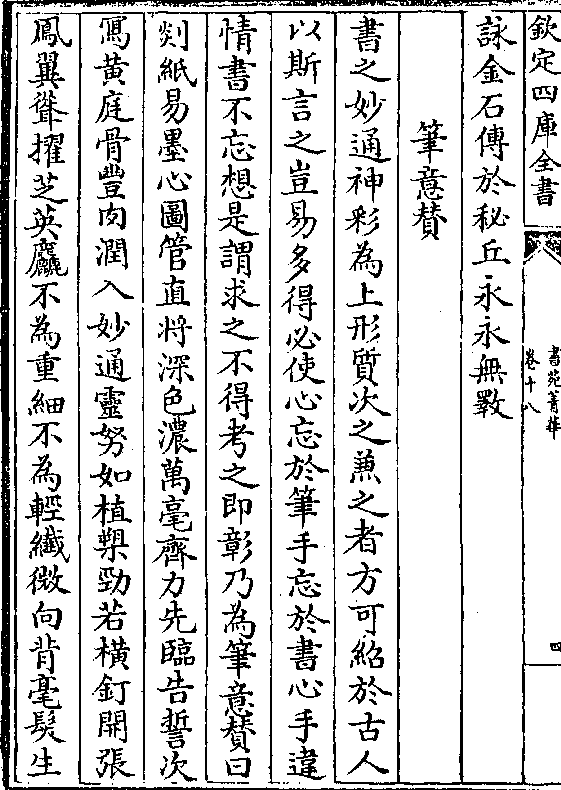 欽定四庫全書
書苑菁華
卷十八
四
詠金石傳於秘丘永永無斁
筆意賛
書之妙通神彩為上形質次之兼之者方可紹於古人
以斯言之豈易多得必使心忘於筆手忘於書心手違
情書不忘想是謂求之不得考之即彰乃為筆意賛曰
剡紙易墨心圖管直將深色濃萬毫齊力先臨告誓次
寫黃庭骨豐肉潤入妙通靈努如植槊勁若橫釘開張
鳳翼聳擢芝英麤不為重細不為輕纎微向背毫髮生